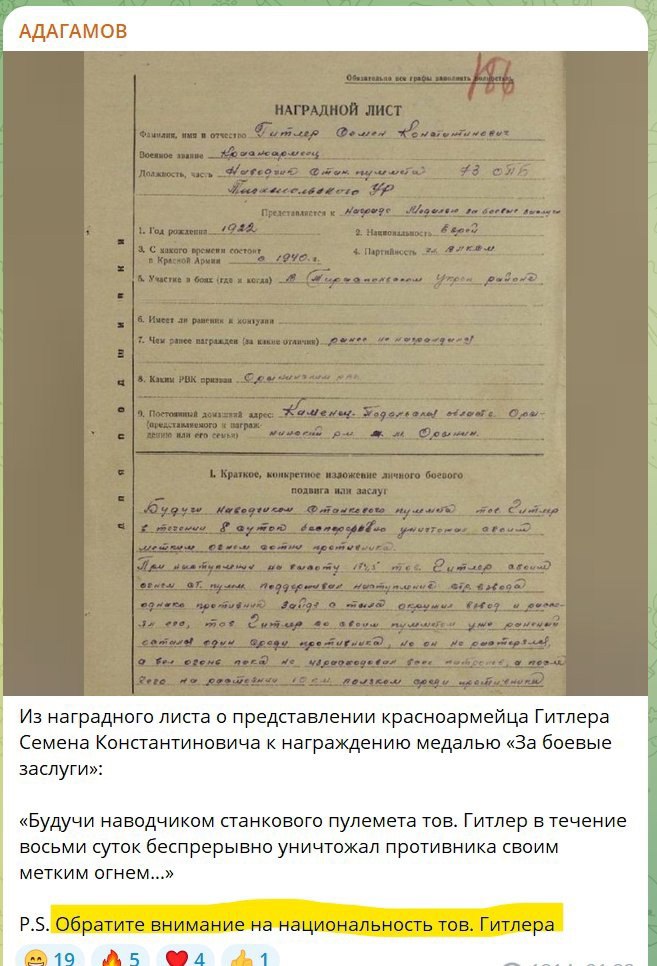 АДАГАМОВ
Обязательно все графы заполнить полностью.
186
НАГРАДНОЙ ЛИСТ
Фамилия, имя и отчество Гитлер Семен Константинович
Военное звание Красноармеец
Должность, часть Наводчик Стан. пулемета 73 ОПБ
Тираспольского УР
Представляется к награде Медалью за боевые заслуги
1. Год рождения 1922 2. Национальность еврей
3. С какого времени состоит
в Красной Армии с 1940 г. 4. Партийность чл. ВЛКСМ
5. Участие в боях (где и когда) в Тираспольском Укреп районе
6. Имеет ли ранения и контузии
7. Чем ранее награжден (за какие отличия) ранее не награждался
8. Каким РВК призван Орининским рвк
9. Постоянный домашний адрес: Каменец-Подольская область Ори-
(представляемого к награж-
дению или его семьи) нинский р-н м. Оринин.
I. Краткое, конкретное изложение личного боевого
подвига или заслуг
Будучи наводчиком Станкового пулемета тов Гитлер
в течении 8 суток беспрерывно уничтожал своим
метким огнем сотни противника.
При наступлении на высоту 174,5 тов. Гитлер своим
огнем ст. пулем. поддерживал наступление стр. взвода
однако противник зайдя с тыла окружил взвод и рассе-
ял его, тов Гитлер со своим пулеметом уже раненый
остался один среди противника, но он не растерялся,
а вел огонь пока не израсходовал всех патронов, а после
чего на расстоянии 10 км. ползком среди противника
Из наградного листа о представлении красноармейца Гитлера
Семена Константиновича к награждению медалью «За боевые
заслуги»:
«Будучи наводчиком станкового пулемета тов. Гитлер в течение
восьми суток беспрерывно уничтожал противника своим
метким огнем...»
P.S. Обратите внимание на национальность тов. Гитлера
19 5 4 1